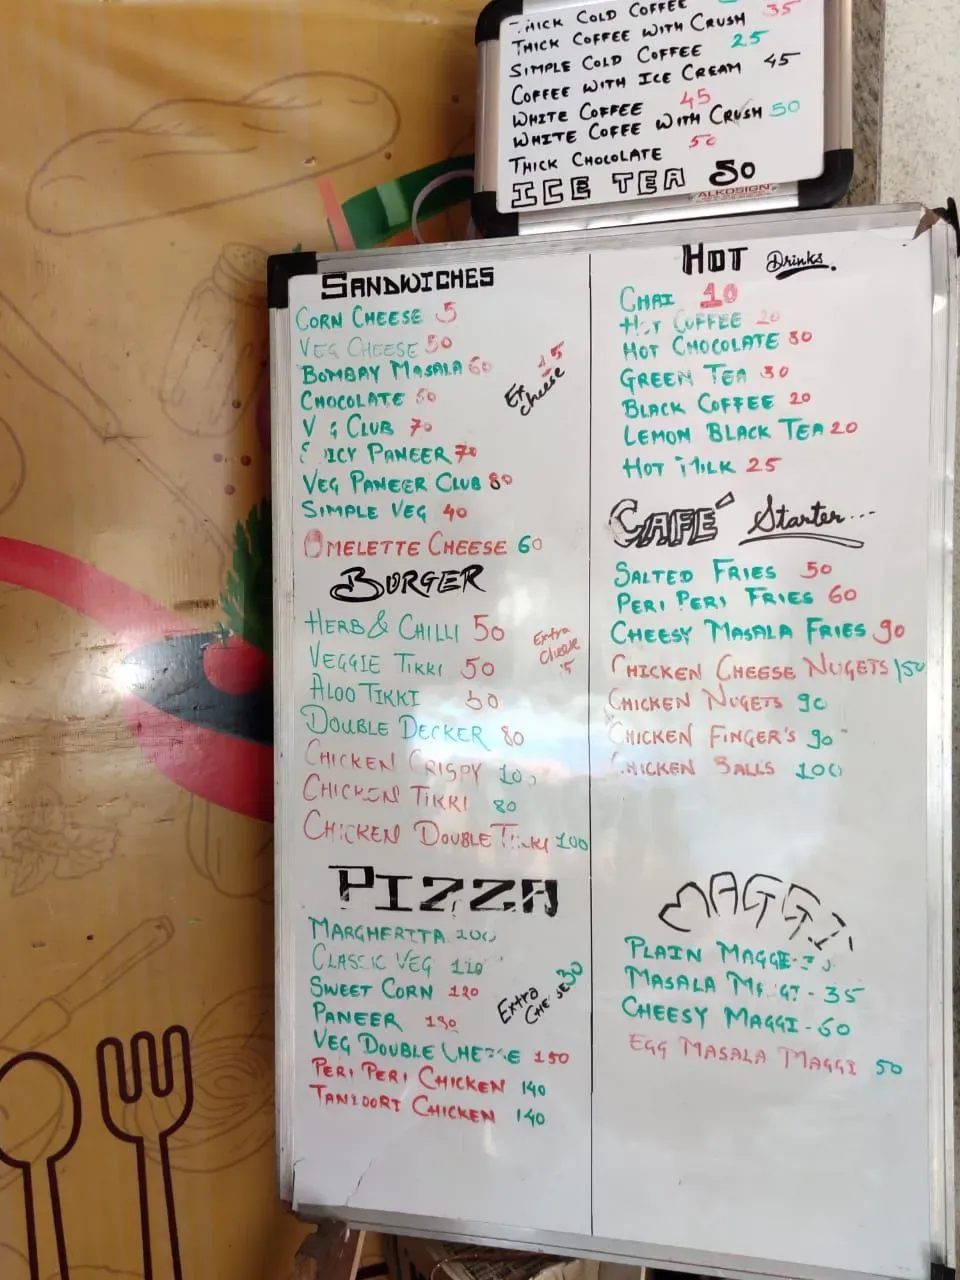 THICK COLD COFFEE
THICK COFFEE WITH CRUSH 35
SIMPLE COLD COFFEE 25
COFFEE WITH ICE CREAM 45
WHITE COFFEE 45
WHITE COFFE WITH CRUSH 50
THICK CHOCOLATE 50
ICE TEA 50
ALKOSIGN
SANDWICHES
CORN CHEESE 5
VEG CHEESE 50
BOMBAY MASALA 60
CHOCOLATE 50
V G CLUB 70
ICY PANEER 70
VEG PANEER CLUB 80
SIMPLE VEG 40
OMELETTE CHEESE 60
Ex cheese 15
BURGER
HERB & CHILLI 50
VEGGIE TIKKI 50
ALOO TIKKI 50
DOUBLE DECKER 80
CHICKEN CRISPY 100
CHICKEN TIKKI 80
CHICKEN DOUBLE TIKKI 100
Extra cheese 15
PIZZA
MARGHERITA 100
CLASSIC VEG 110
SWEET CORN 120
PANEER 130
VEG DOUBLE CHEESE 150
PERI PERI CHICKEN 140
TANDOORI CHICKEN 140
Extra CHEESE 30
HOT Drinks.
CHAI 10
HOT COFFEE 20
HOT CHOCOLATE 30
GREEN TEA 30
BLACK COFFEE 20
LEMON BLACK TEA 20
HOT MILK 25
CAFE' Starter...
SALTED FRIES 50
PERI PERI FRIES 60
CHEESY MASALA FRIES 90
CHICKEN CHEESE NUGETS 150
CHICKEN NUGETS 90
CHICKEN FINGER'S 90
CHICKEN BALLS 100
MAGGI
PLAIN MAGGI-
MASALA MAGGI - 35
CHEESY MAGGI - 60
EGG MASALA MAGGI 50